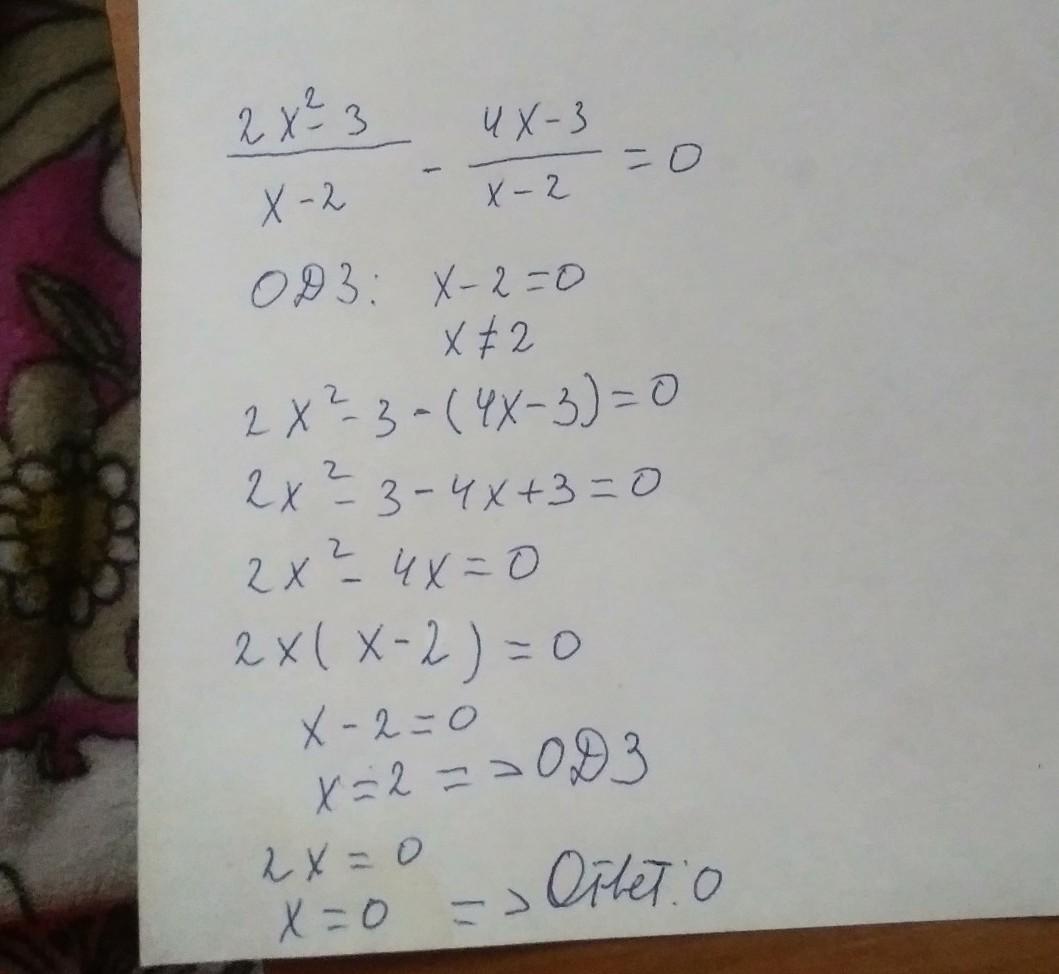 (2x² - 3)/(x - 2) - (4x - 3)/(x - 2) = 0
ОДЗ: x - 2 = 0
x ≠ 2
2x² - 3 - (4x - 3) = 0
2x² - 3 - 4x + 3 = 0
2x² - 4x = 0
2x(x - 2) = 0
x - 2 = 0
x = 2 => ОДЗ
2x = 0
x = 0 => Ответ: 0